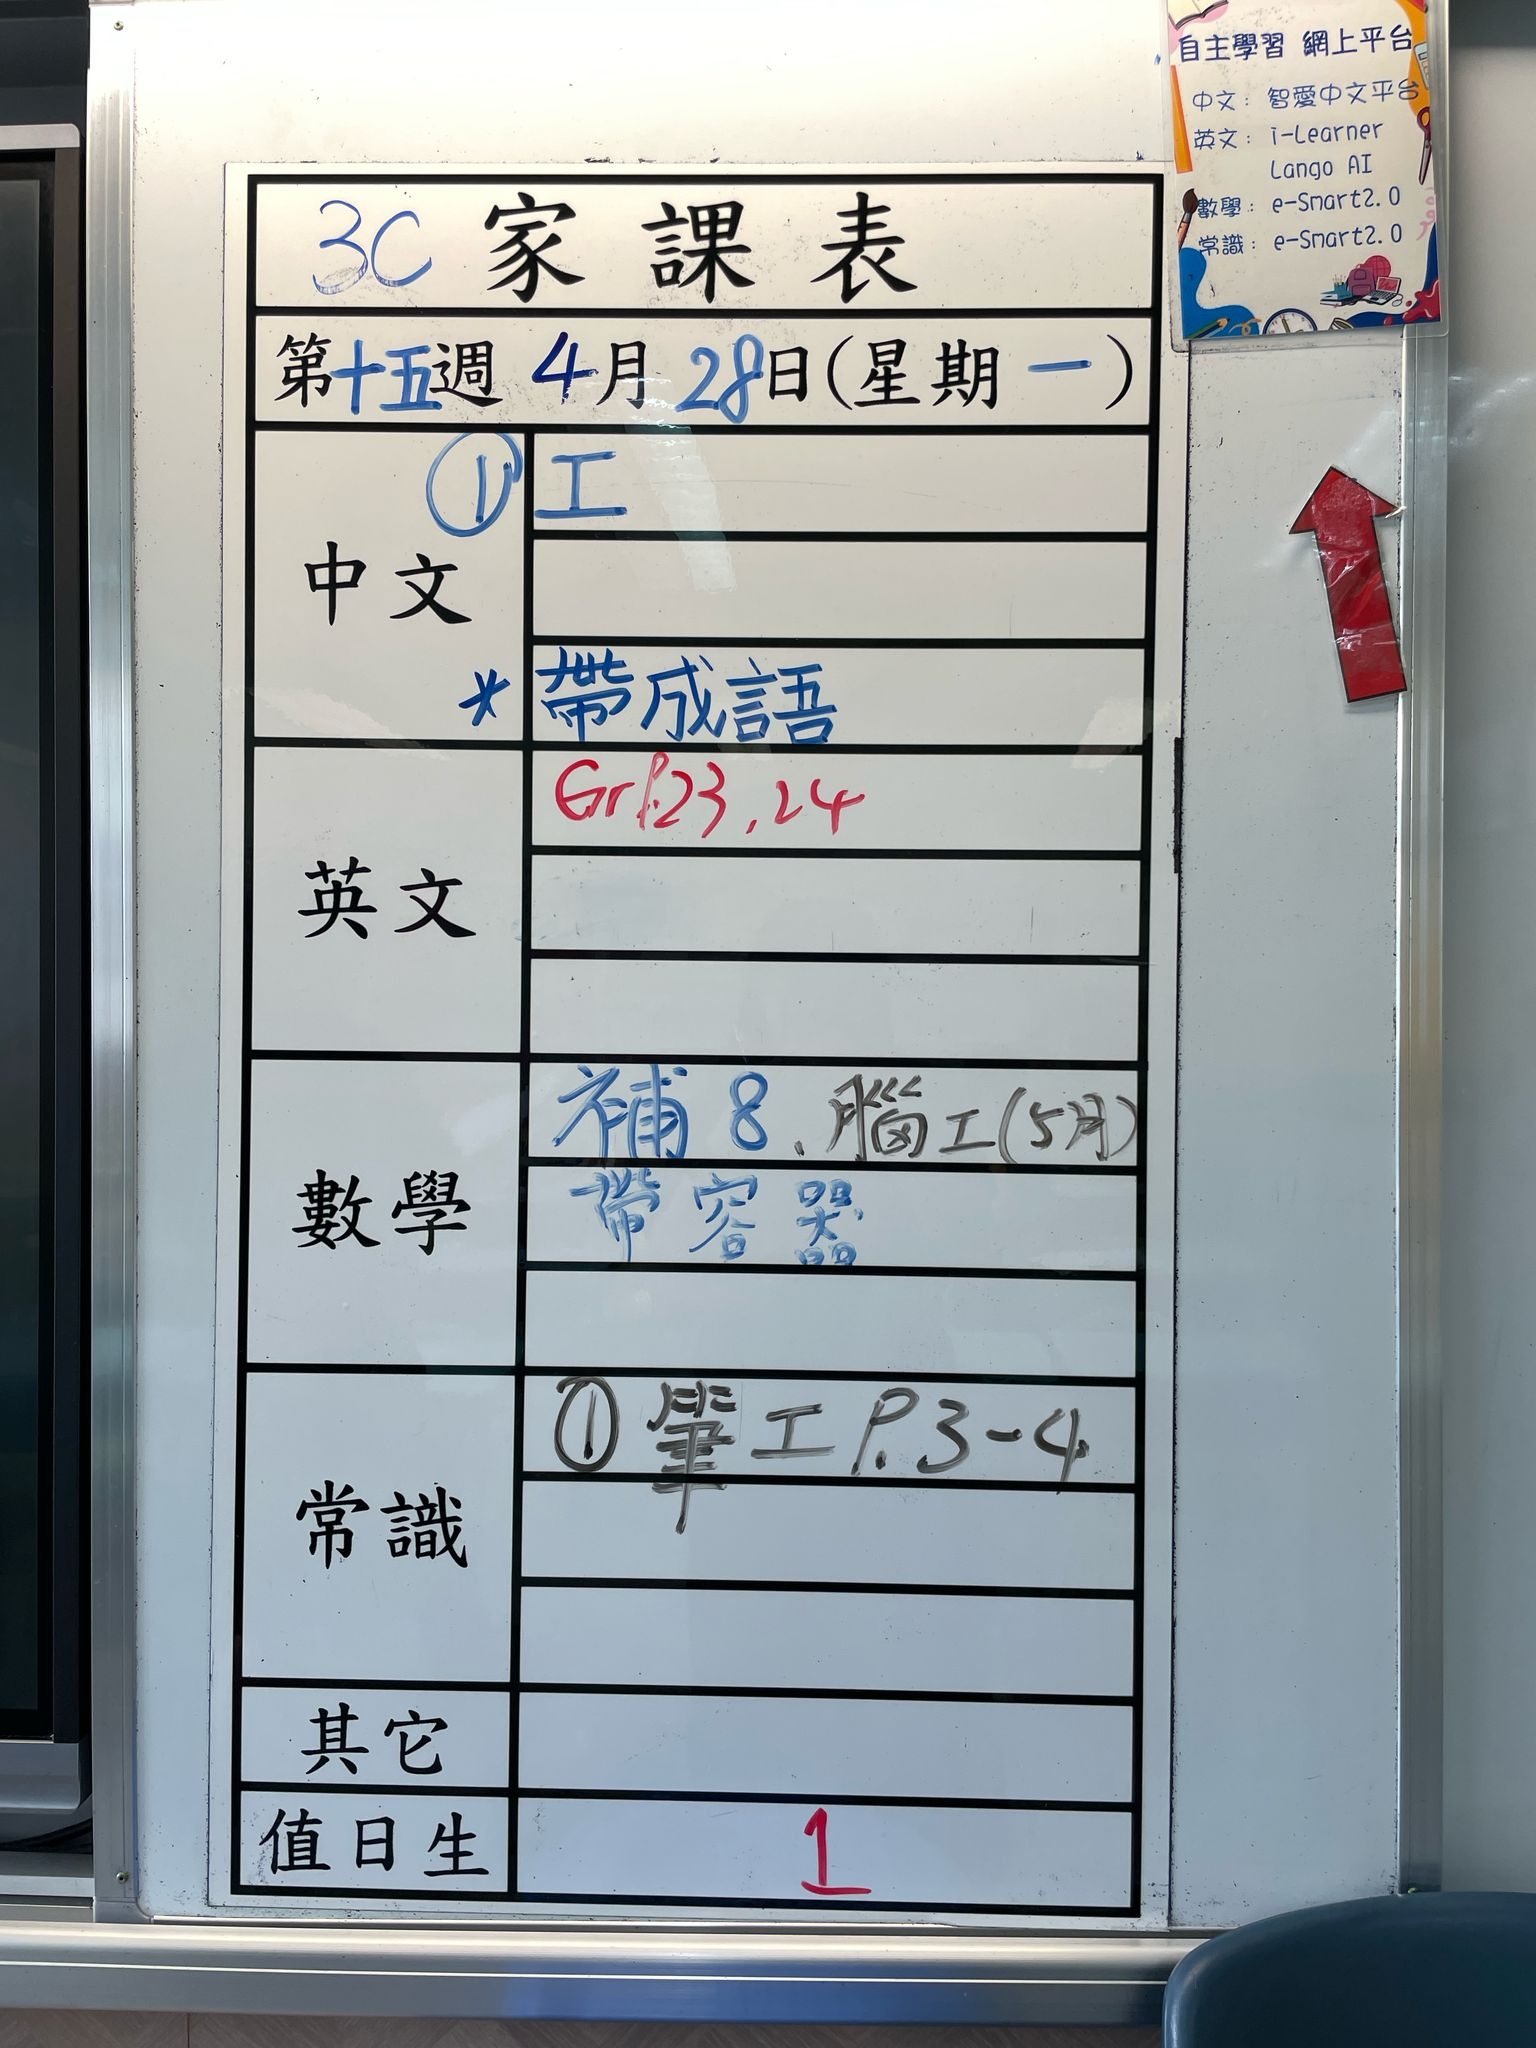 自主學習 網上平台
中文： 智愛中文平台
英文： i-Learner
Lango AI
數學： e-Smart2.0
常識： e-Smart2.0
3C 家課表
第十五週 4月28日(星期一)
中文
① 工
* 帶成語
英文
Gr P.23, 24
數學
補 8、腦工(5月)
帶容器
常識
① 筆工 P.3-4
其它
值日生
1